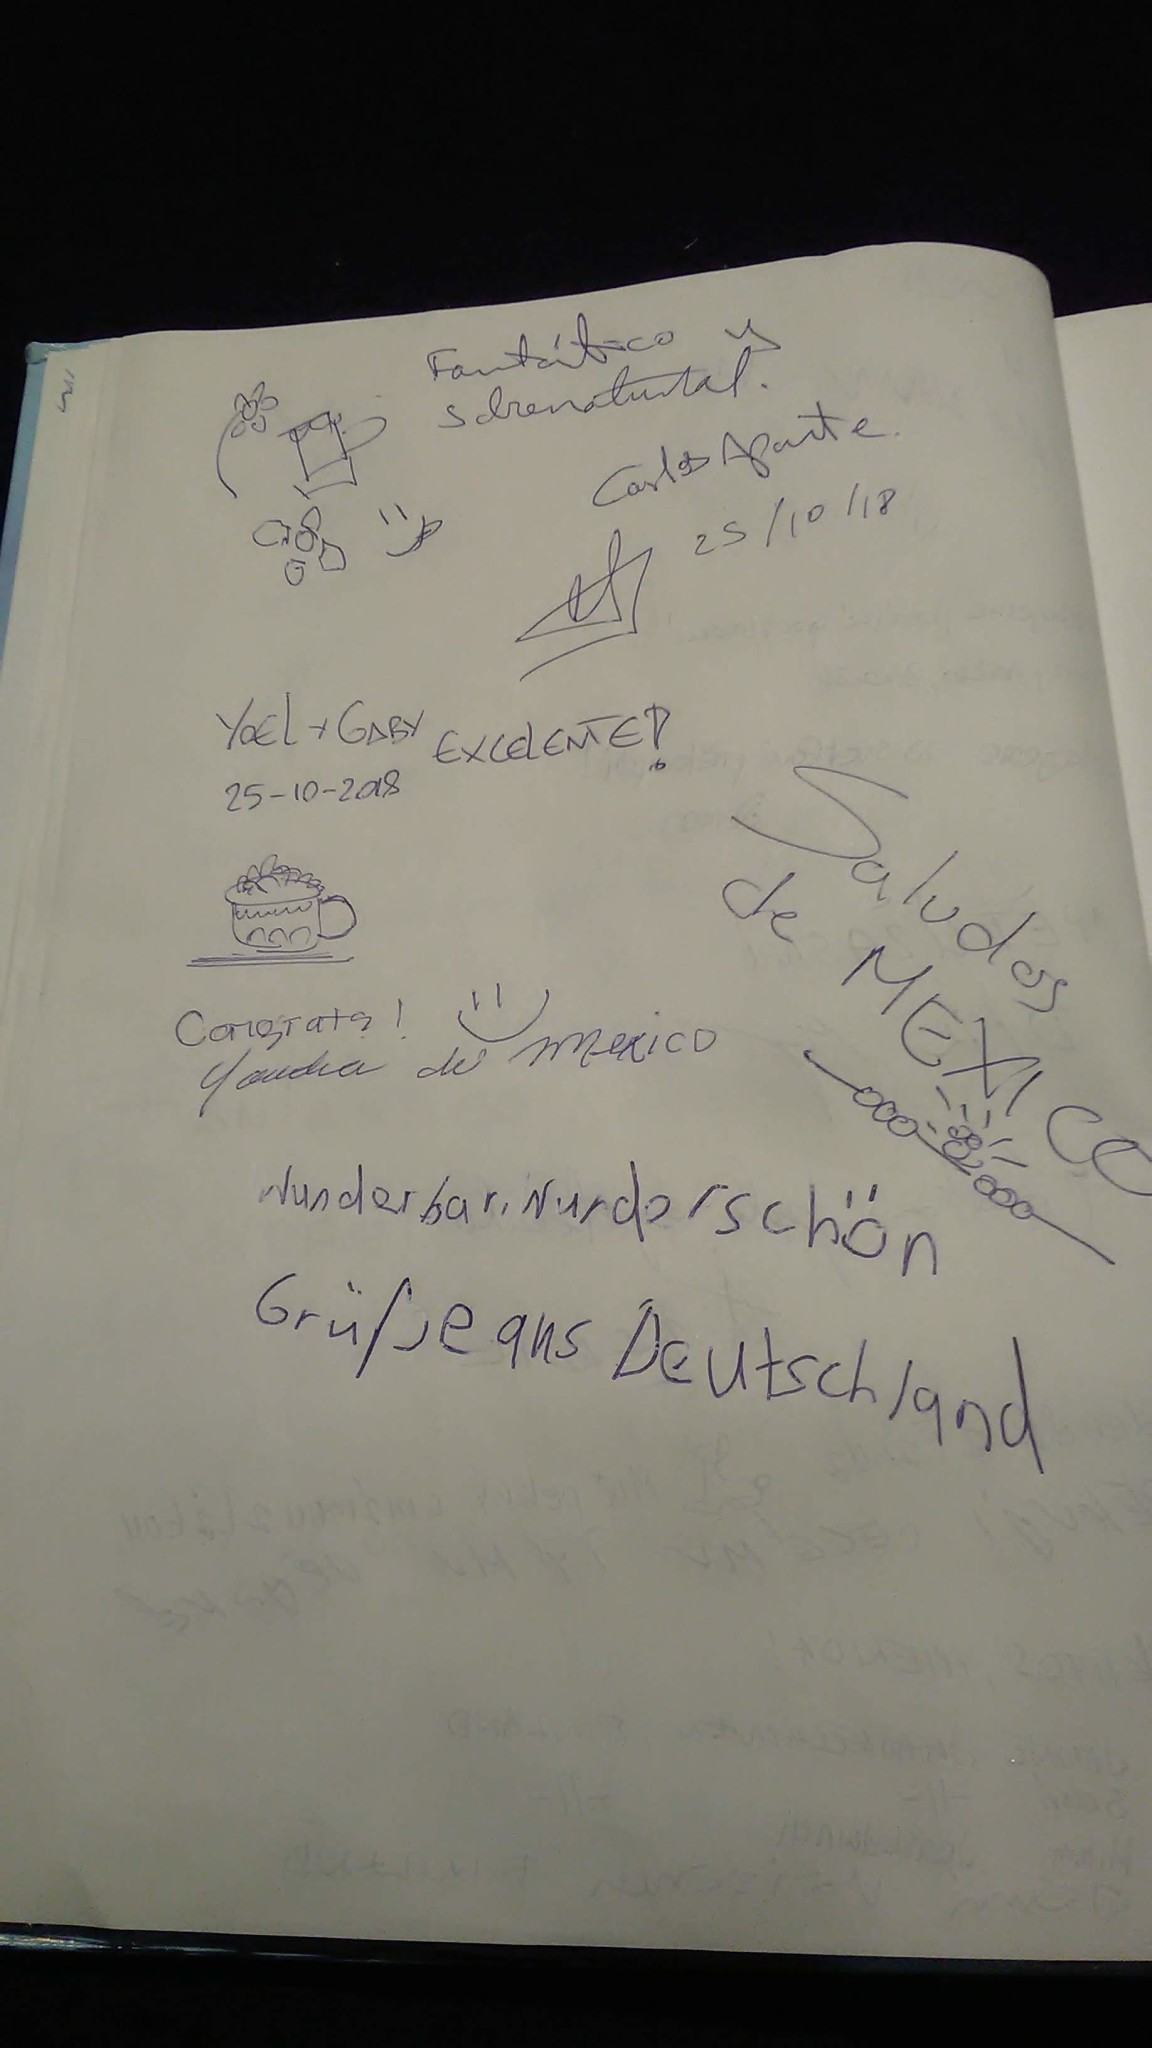 Fantástico y
sobrenatural.
Carlos Aponte.
25/10/18
YOEL Y GABY EXCELENTE!
25-10-2018
Saludos
de MEXICO
Congrats!
de Mexico
Wunderbar, Wunderschön
Grüße aus Deutschland